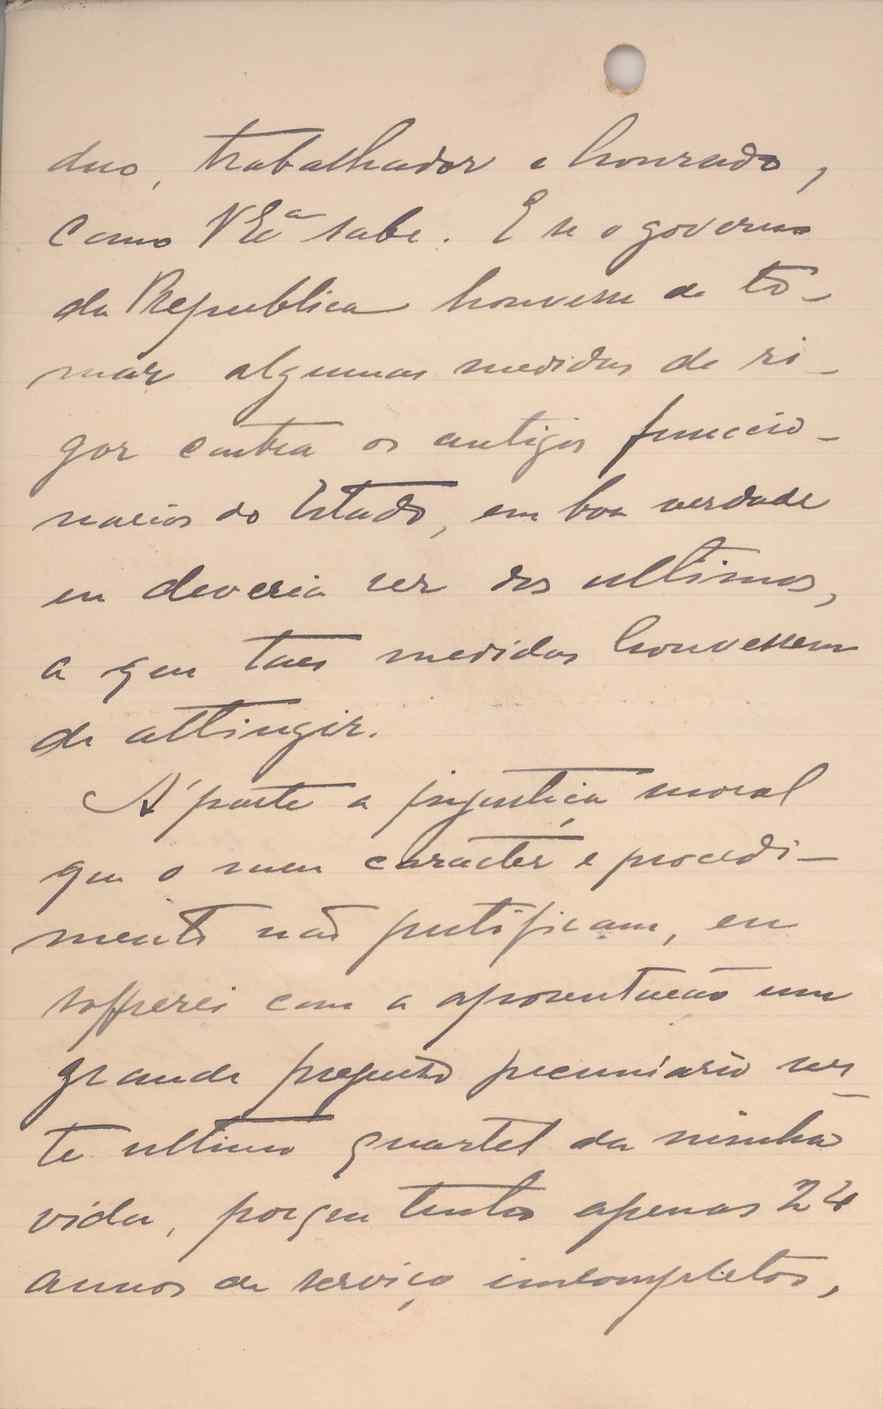 duo, trabalhador e honrado,
como V Exª sabe. E se o governo
da Republica houvesse de to-
mar algumas medidas de ri-
gor contra os antigos funccio-
narios do Estado, em boa verdade
eu deveria ser dos ultimos,
a que taes medidas houvessem
de attingir.
A' parte a injustiça moral
que o meu caracter e procedi-
mento não justificam, eu
soffrerei com a aposentação um
grande prejuizo pecuniario nes-
te ultimo quartel da minha
vida, porque tenho apenas 24
annos de serviço incompletos,